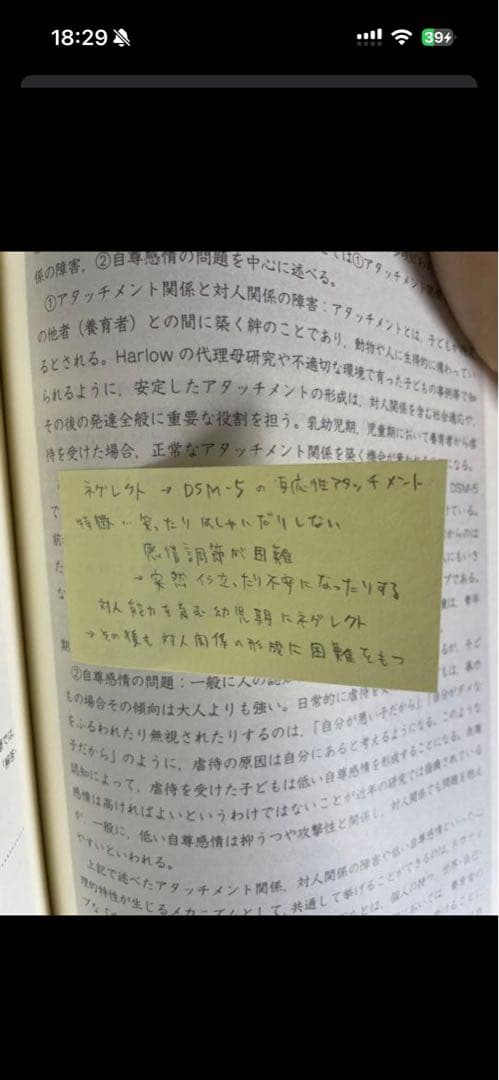 18:29
39
係の障害，②自尊感情の問題を中心に述べる。
①アタッチメント
①アタッチメント関係と対人関係の障害：アタッチメントとは，子どもが
の他者（養育者）との間に築く絆のことであり，動物や人に生得的に備わってい
るとされる。Harlowの代理母研究や不適切な環境で育った子どもの事例等で
られるように，安定したアタッチメントの形成は，対人関係を含む社会適応や，
その後の発達全般に重要な役割を担う。乳幼児期，児童期において養育者から虐
待を受けた場合，正常なアタッチメント関係を築く機会が
になる。
DSM-5
ネグレクト → DSM-5の 反応性アタッチメント
特徴：笑ったりはしゃいだりしない
感情調節が困難
→突然イラ立ったり不安になったりする
対人能力を育む幼児期にネグレクト
→その後も対人関係の形成に困難をもつ
②自尊感情の問題：一般に人の認
が，子ど
もの場合その傾向は大人よりも強い。日常的に虐待を
をふるわれたり無視されたりするのは，「自分が悪い子だから」「自分がダメな
子だから」のように，虐待の原因は自分にあると考えるようになる。このような
認知によって，虐待を受けた子どもは低い自尊感情を形成することになる。自尊
感情は高ければよいというわけではないことが近年の研究では指摘されている
が，一般に，低い自尊感情は抑うつや攻撃性と関係し，対人関係でも問題を抱え
やすいといわれる。
上記で述べたアタッチメント関係，対人関係の障害や低い自尊感情といった心
理的特性が生じるメカニズムとして，共通して挙げることができるのは，